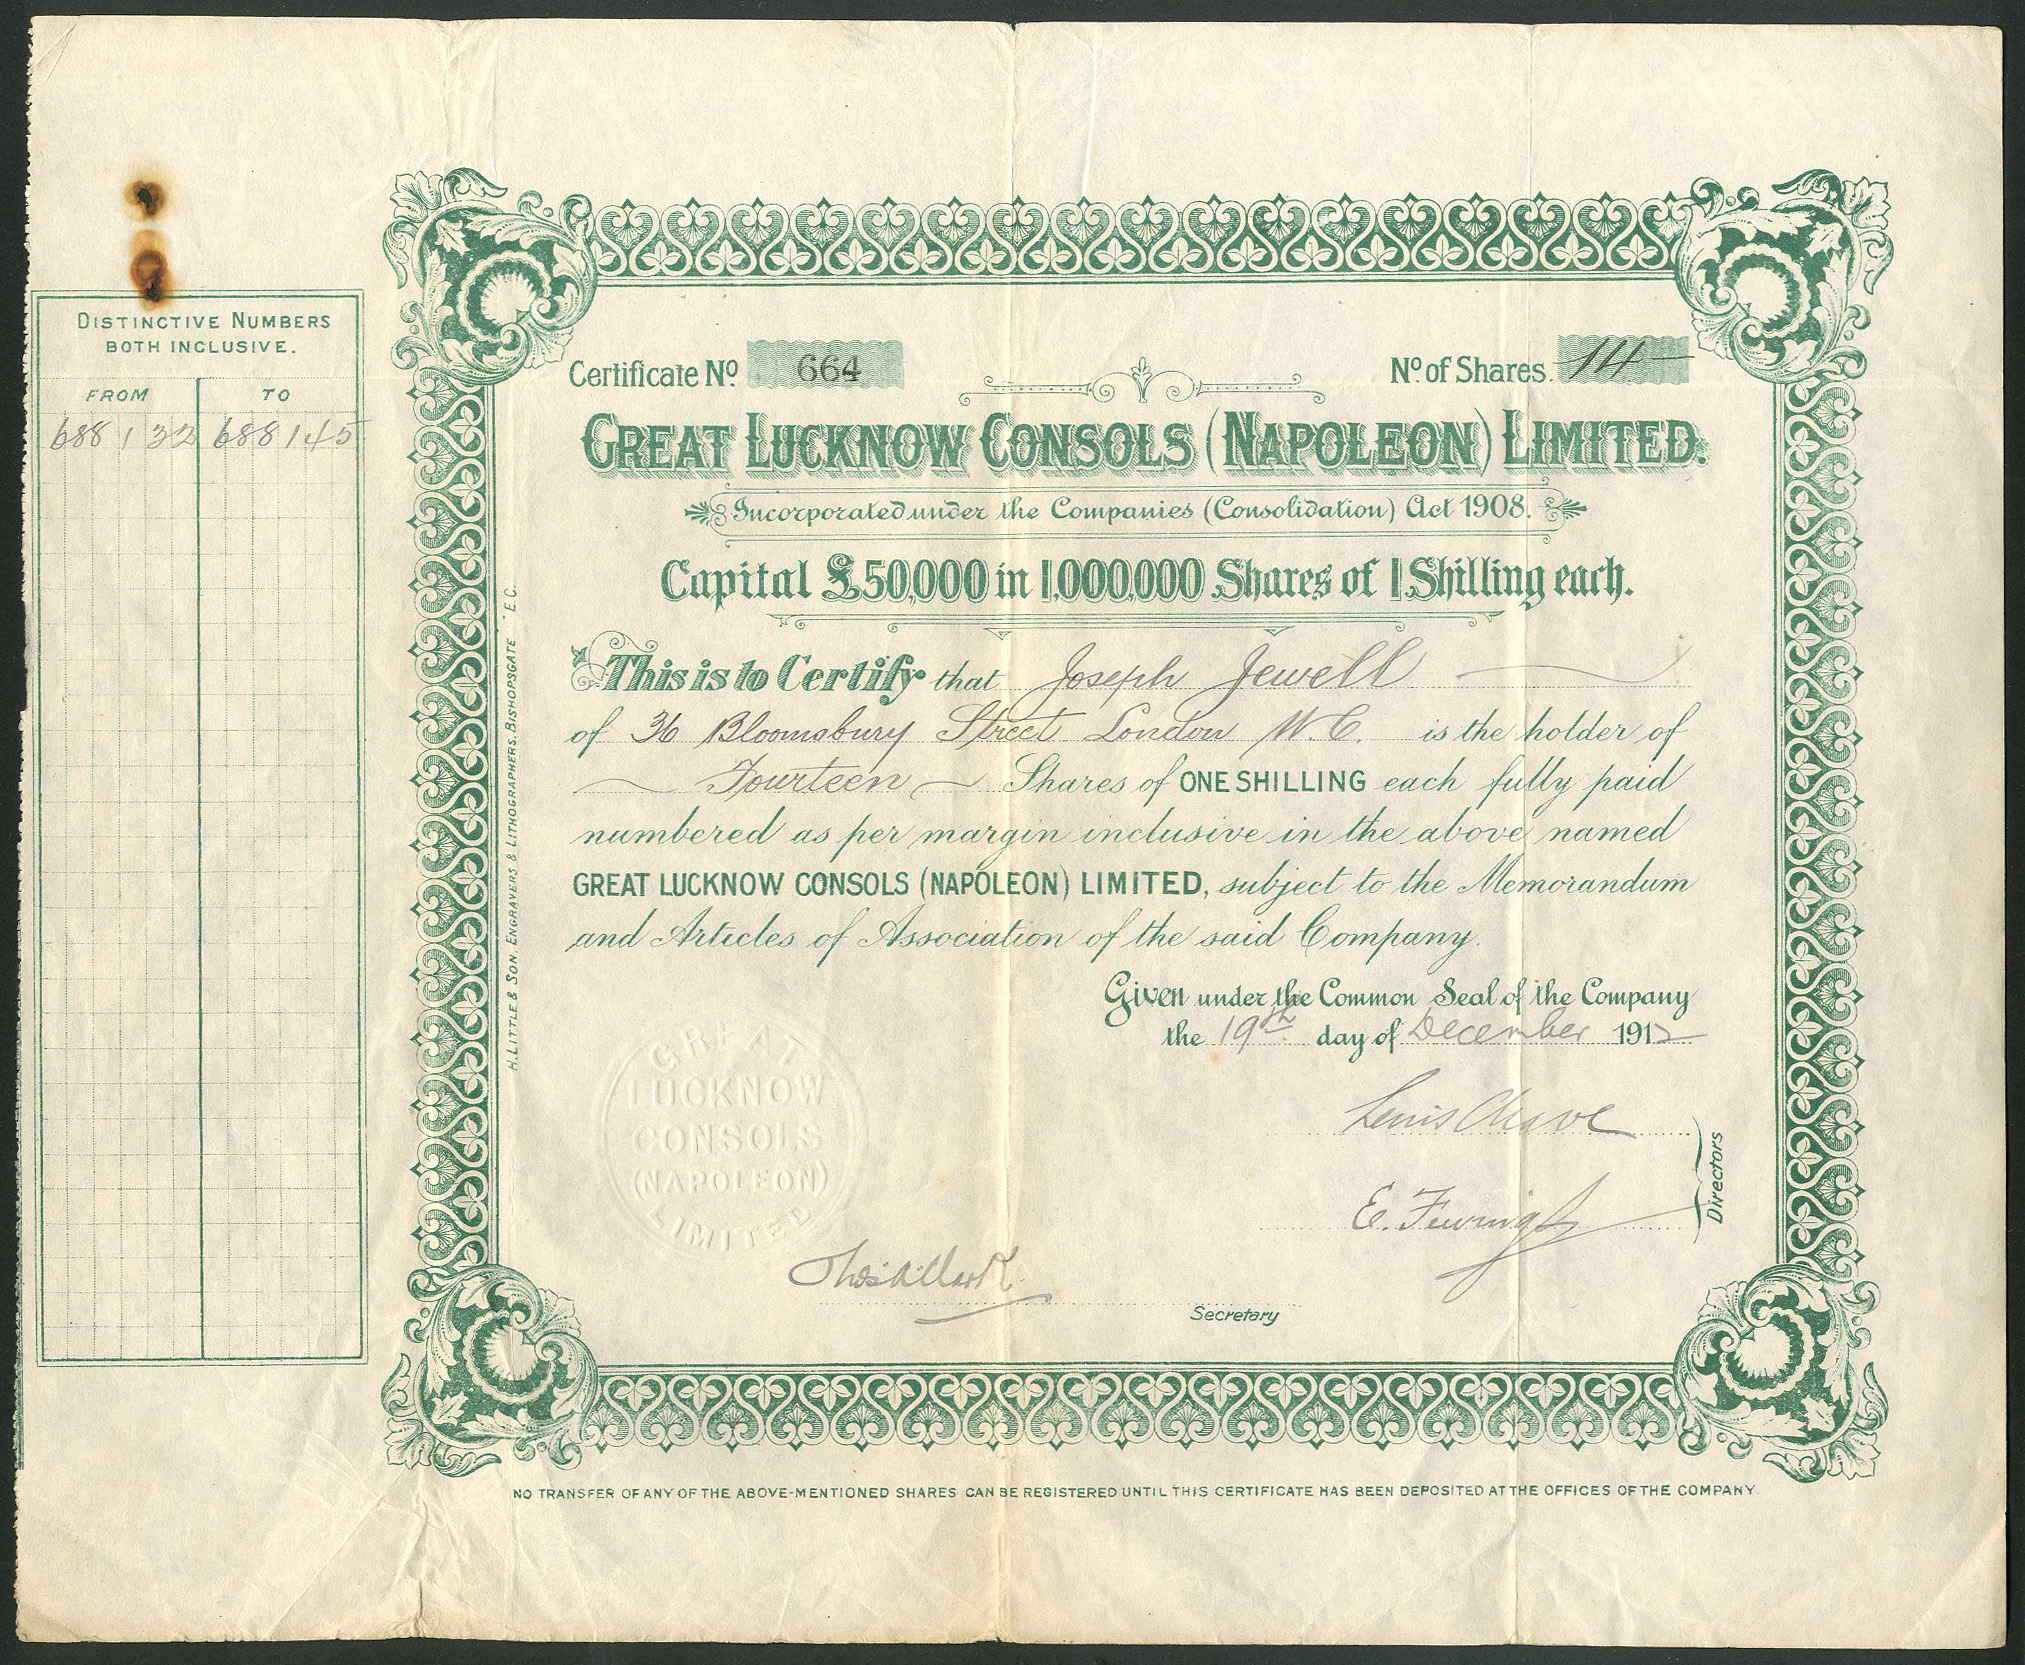 DISTINCTIVE NUMBERS
BOTH INCLUSIVE.
FROM TO
688132 688145
H. LITTLE & SON. ENGRAVERS & LITHOGRAPHERS. BISHOPSGATE E.C.
Certificate No. 664 No. of Shares. 14
GREAT LUCKNOW CONSOLS (NAPOLEON) LIMITED.
Incorporated under the Companies (Consolidation) Act 1908.
Capital £50,000 in 1,000,000 Shares of 1 Shilling each.
This is to Certify that Joseph Jewell
of 36 Bloomsbury Street London W.C. is the holder of
Fourteen Shares of ONE SHILLING each fully paid
numbered as per margin inclusive in the above named
GREAT LUCKNOW CONSOLS (NAPOLEON) LIMITED, subject to the Memorandum
and Articles of Association of the said Company.
Given under the Common Seal of the Company
the 19th day of December 1912
GREAT
LUCKNOW
CONSOLS
(NAPOLEON)
LIMITED
Lewis
Directors
E.
Secretary
NO TRANSFER OF ANY OF THE ABOVE-MENTIONED SHARES CAN BE REGISTERED UNTIL THIS CERTIFICATE HAS BEEN DEPOSITED AT THE OFFICES OF THE COMPANY.